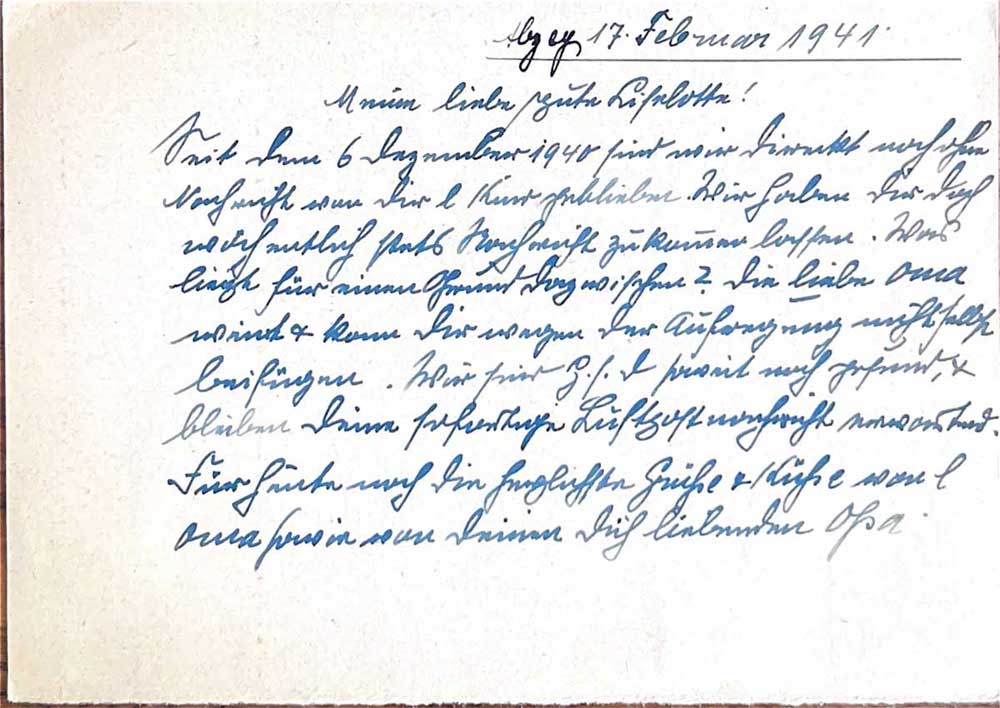 Alzey 17. Februar 1941.
Meine liebe gute Liselotte!
Seit dem 6 Dezember 1940 sind wir direckt noch ohne
Nachricht von Dir l Kind geblieben. Wir haben Dir doch
wöchentlich stets Nachricht zukom̅en lassen. Was
liegt für einen Grund dazwischen? Die liebe Oma
weint & kann Dir wegen der Aufregung nicht selbst
beifügen. Wir sind G. s. d soweit noch gesund, &
bleiben Deine sofortige Luftpostnachricht erwartend.
Für heute noch die herzlichste Grüße & Küße von l
Oma sowie von Deinen Dich liebenden Opa.